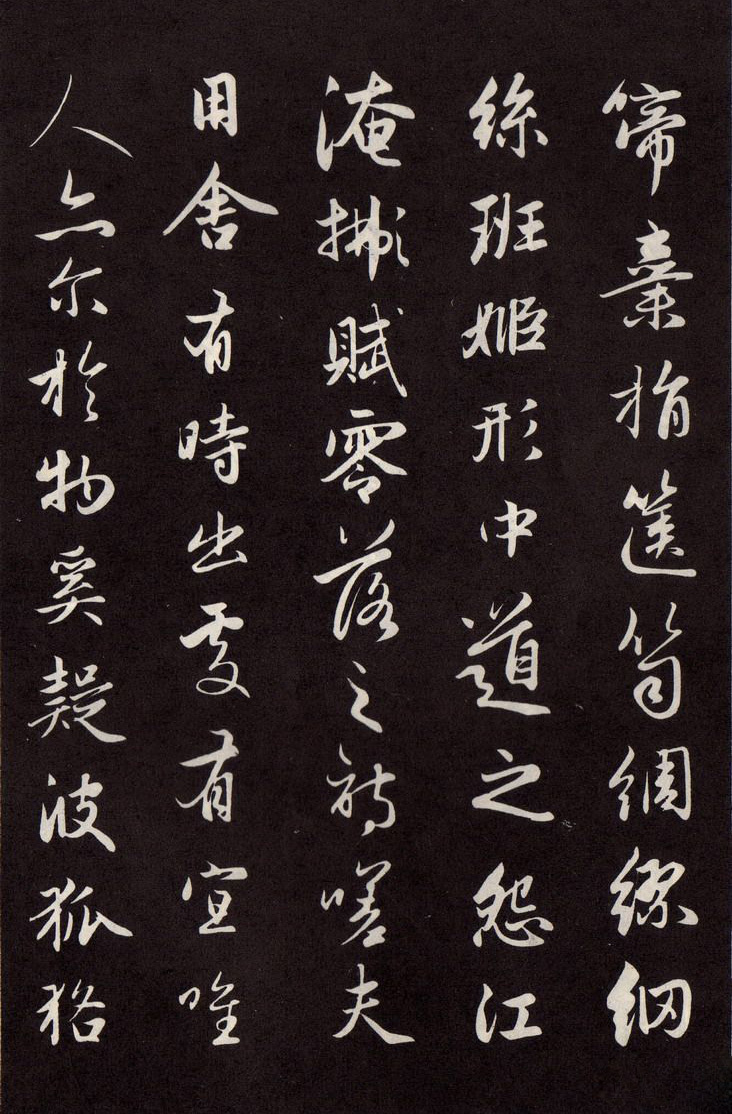 棄捐篋笥綢繆網
絲班姬形中道之怨江
淹賦零落之詩嗟夫
用舍有時出處有宜唯
人亦尔於物奚疑彼狐狢